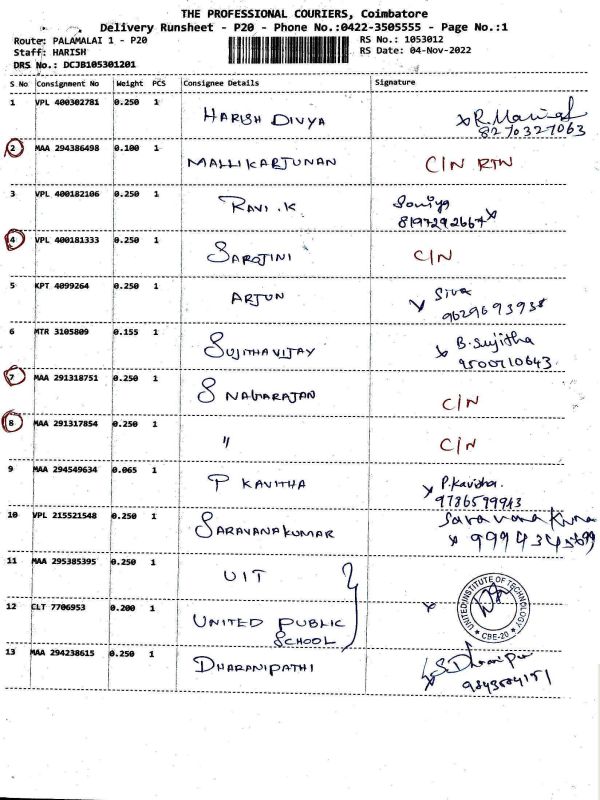 THE PROFESSIONAL COURIERS, Coimbatore
Delivery Runsheet - P20 - Phone No.:0422-3505555 - Page No.:1
Route: PALAMALAI 1 - P20 RS No.: 1053012
Staff: HARISH RS Date: 04-Nov-2022
DRS No.: DCJB105301201
S No Consignment No Weight PCS Consignee Details Signature
1 VPL 400302781 0.250 1 HARISH DIVYA
8270327063
2 MAA 294386498 0.100 1 MALLIKARJUNAN C/N RTN
3 VPL 400182106 0.250 1 RAVI.K Soniya
8197292667
4 VPL 400181333 0.250 1 SAROJINI C/N
5 KPT 4099264 0.250 1 ARJUN Siva
9629693938
6 MTR 3105809 0.155 1 SUJITHA VIJAY B. Sujitha
9500710643
7 MAA 291318751 0.250 1 S NAGARAJAN C/N
8 MAA 291317854 0.250 1 " C/N
9 MAA 294549634 0.065 1 P KAVITHA P.Kavitha.
9786599943
10 VPL 215521548 0.250 1 SARAVANAKUMAR Saravana Kumar
11 MAA 295385395 0.250 1 UIT
UNITED INSTITUTE OF TECHNOLOGY
* CBE-20 *
12 CLT 7706953 0.200 1 UNITED PUBLIC
SCHOOL
13 MAA 294238615 0.250 1 DHARANIPATHI